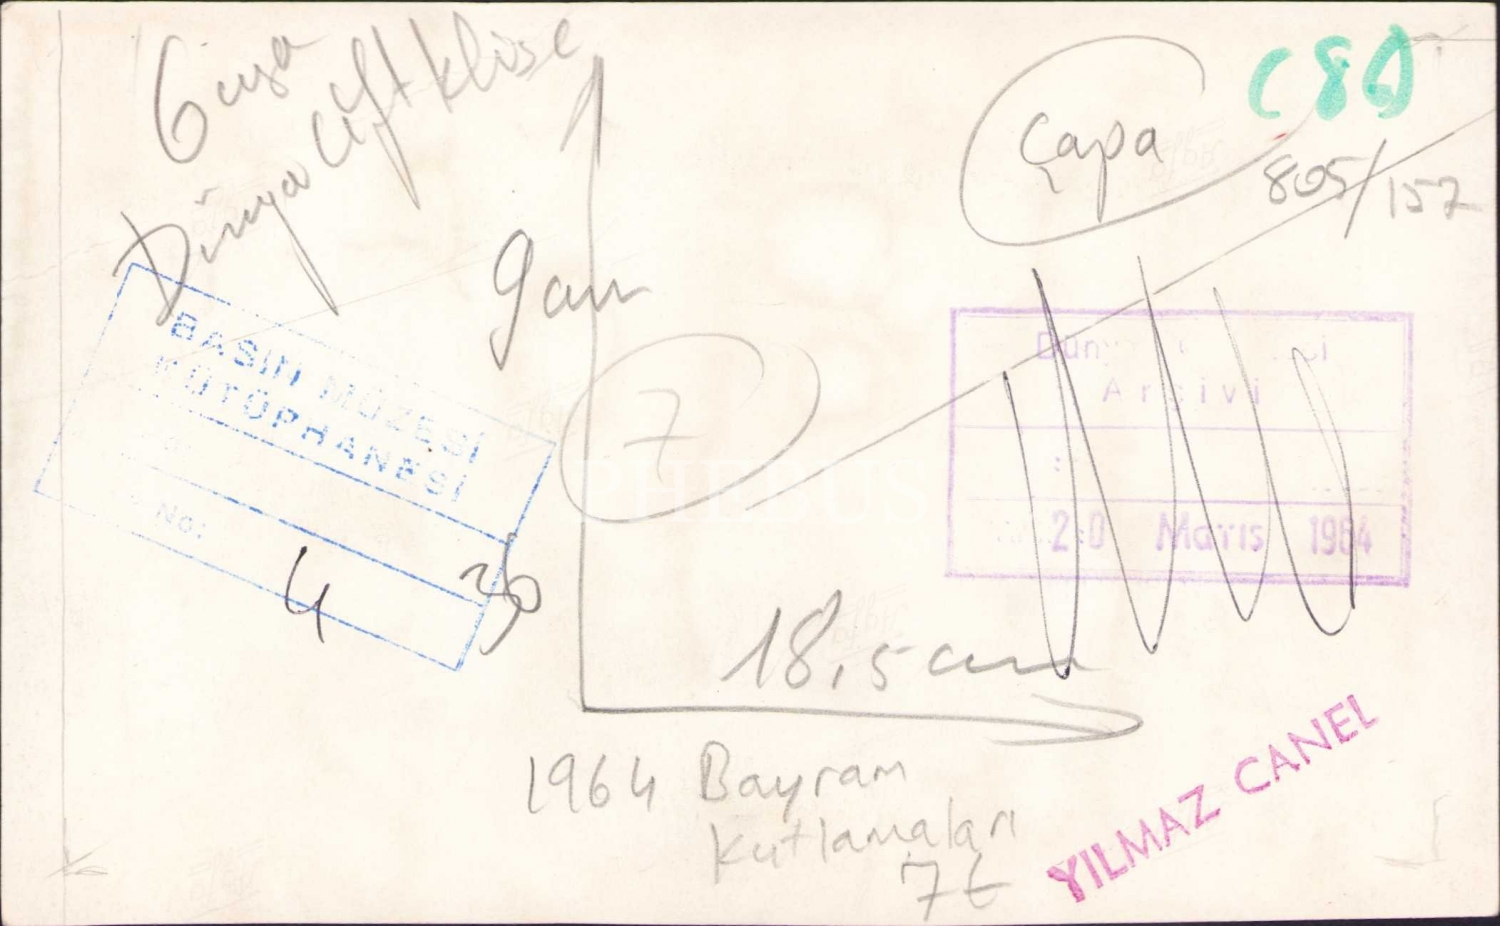 Dünya çift klişe
C8D
Çapa
805/157
9 cm
BASIN MÜZESİ
KÜTÜPHANESİ
No:
4
36
7
PHEBUS
Arşivi
20 Mayıs 1964
18,5 cm
1964 Bayram
Kutlamaları
7t
YILMAZ CANEL